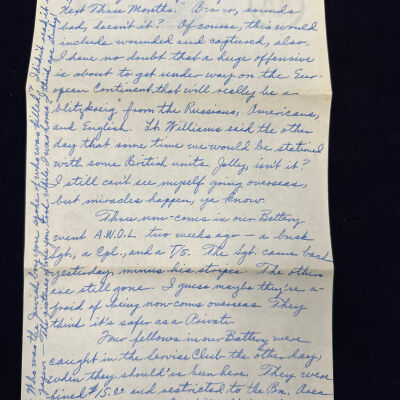 Next Three Months." Br-r-r, sounds
bad, doesn't it? Of course, this would
include wounded and captured, also.
I have no doubt that a huge offensive
is about to get under way on the Eur-
opean Continent that will really be a
"blitzkreig" from the Russians, Americans,
and English. Lt. Williams said the other
day that some time we would be stationed
with some British units. Jolly, isn't it?
I still can't see myself going overseas,
but miracles happen, ya know.
Three non-coms in our Battery
went A.W.O.L. two weeks ago — a buck
Sgt., a Cpl., and a T/5. The Sgt. came back
yesterday, minus his stripes. The others
are still gone. I guess maybe they're a-
fraid of being non-coms overseas. They
think it's safer as a Private.
Four fellows in our Battery were
caught in the Service Club the other day,
when they should've been here. They were
fined $15.00 and restricted to the Bn. Area
Who was the Jewish boy you spoke of who was killed? I didn't read it